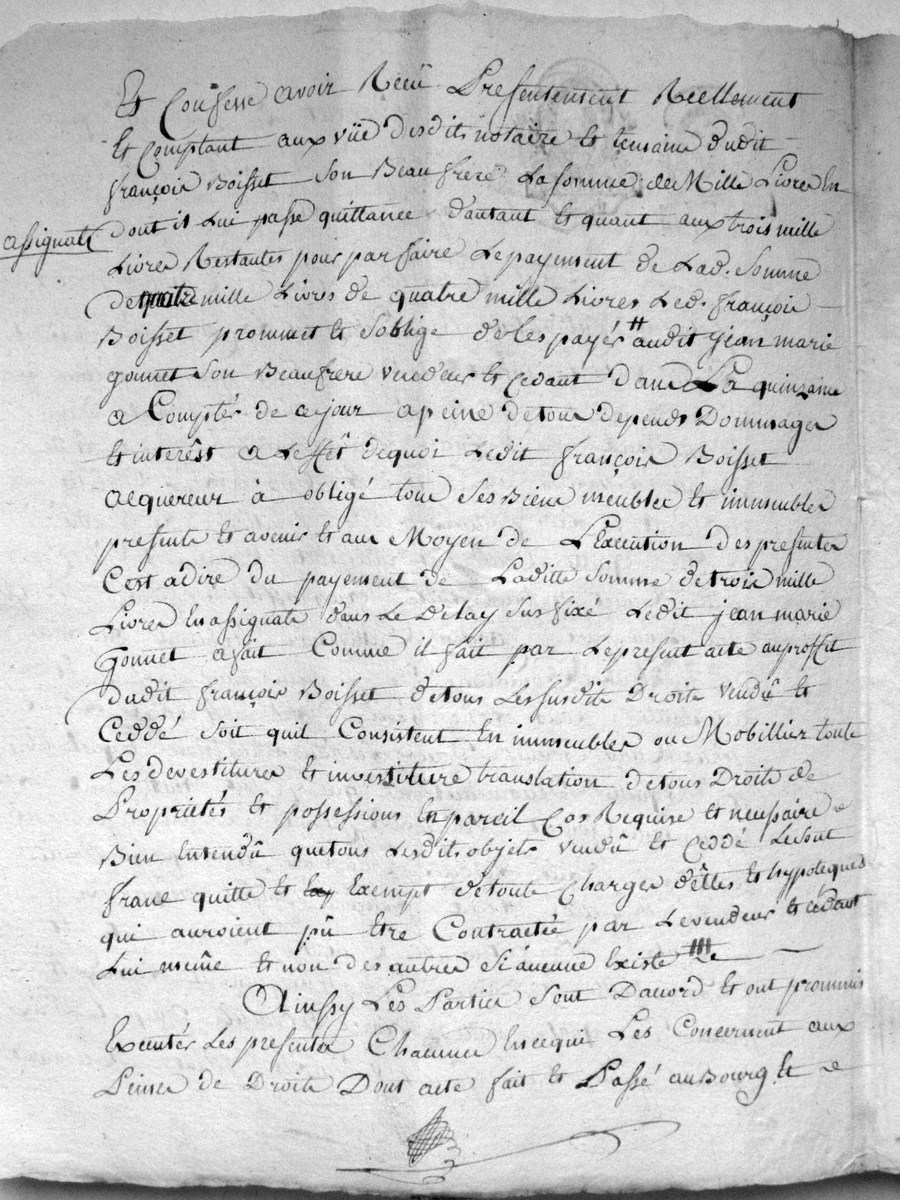 Et Confesse avoir Recû Presentement Reellement
Et Comptant aux vüe Desdits notaire Et temoins dudit
françois Boisset Son Beau frere La somme de Mille Livres En
assignats
dont il Lui passe quittance d'autant Et quant aux trois mille
Livres Restantes pour parfaire Le payement de Lad. Somme
de mille Livres de quatre mille Livres Led. françois
Boisset prommet Et soblige de les payér # audit jean marie
gonnet Son Beaufrere vendeur Et Cedant Dans La quinzaine
a Comptér de ce jour a peine de tous depends Dommages
Et interêst a Leffêt dequoi Ledit françois Boisset
acquereur à obligé tous Ses Biens meubles Et immeubles
presents Et avenir Et au Moyen de LExecution des presentes
Cest adire du payement de Laditte Somme de trois mille
Livres En assignats dans Le Delay Sus fixé Ledit jean marie
Gonnet a fait Comme il fait par Le present acte au proffit
dudit françois Boisset de tous Les susdits Droits vendû Et
Ceddé Soit quil Consistent En immeubles ou Mobillier toute
Les devestitures Et investiture translation de tous Droits de
Propriétés Et possessions En pareil Cas Requise Et necessaire
Bien Entendû que tous Lesdits objets vendû Et Ceddé Le sont
franc quitte Et Exempt de toute Charges dêttes Et hypoteques
qui auroient pû Etre Contractée par Le vendeur Et cédant
Lui même Et non des autres Si aucune Existe
Ainssy Les Parties Sont Dacord Et ont prommis
Executér Les presentes Chacunes En ce qui Les Concernent aux
Peines de Droits Dont acte fait Et Passé au Bourg Et